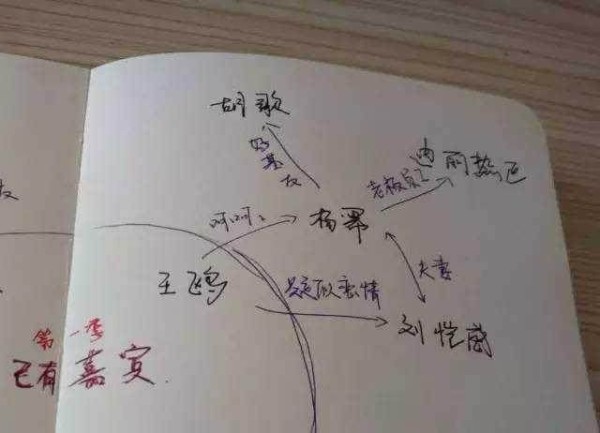 胡歌
好基友
迪丽热巴
老板员工
呵呵。
杨幂
王鸥
夫妻
疑似恋情
刘恺威
第一季
已有嘉宾.
友